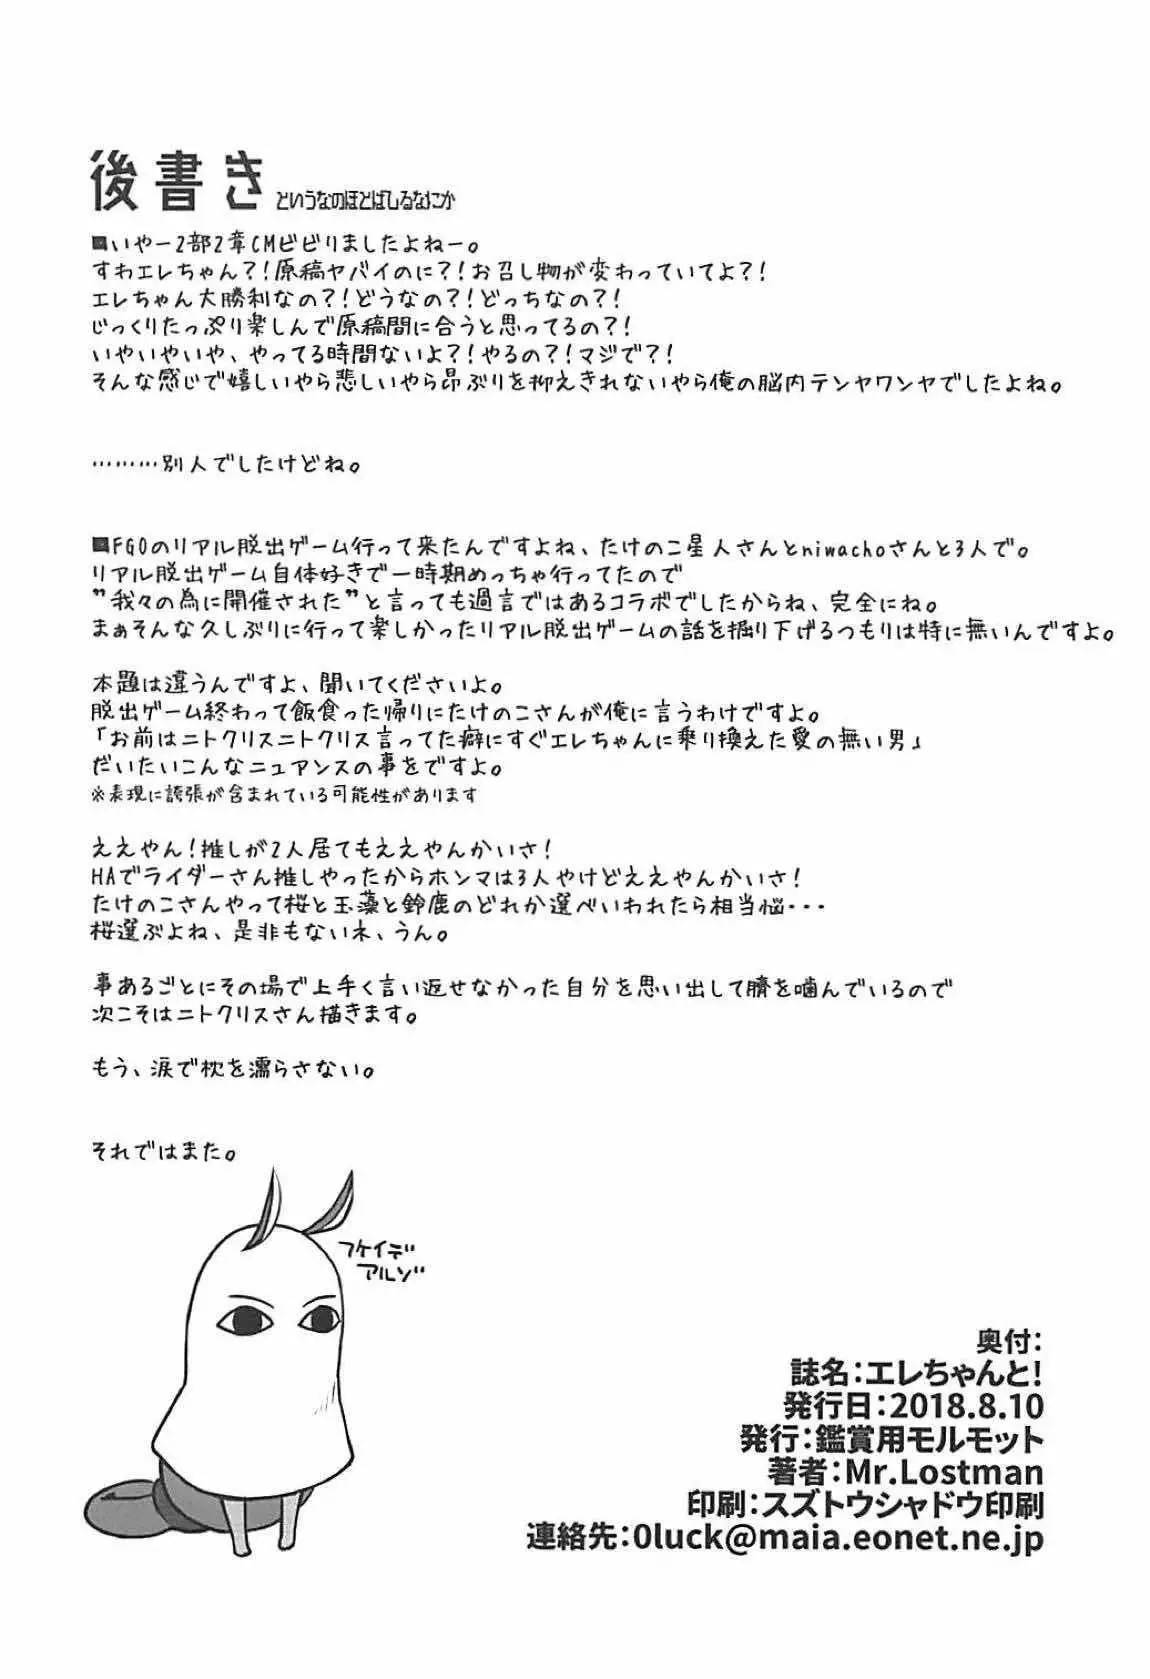 後書き
というなのほとばしるなにか
■いやー2部2章CMビビりましたよねー。
すわエレちゃん?!原稿ヤバイのに?!お召し物が変わっていてよ?!
エレちゃん大勝利なの?!どうなの?!どっちなの?!
じっくりたっぷり楽しんで原稿間に合うと思ってるの?!
いやいやいや、やってる時間ないよ?!やるの?!マジで?!
そんな感じで嬉しいやら悲しいやら昂ぶりを抑えきれないやら俺の脳内テンヤワンヤでしたよね。
………別人でしたけどね。
■FGOのリアル脱出ゲーム行って来たんですよね、たけのこ星人さんとniwachoさんと3人で。
リアル脱出ゲーム自体好きで一時期めっちゃ行ってたので
”我々の為に開催された”と言っても過言ではあるコラボでしたからね、完全にね。
まぁそんな久しぶりに行って楽しかったリアル脱出ゲームの話を掘り下げるつもりは特に無いんですよ。
本題は違うんですよ、聞いてくださいよ。
脱出ゲーム終わって飯食った帰りにたけのこさんが俺に言うわけですよ。
「お前はニトクリスニトクリス言ってた癖にすぐエレちゃんに乗り換えた愛の無い男」
だいたいこんなニュアンスの事をですよ。
※表現に誇張が含まれている可能性があります
ええやん!推しが2人居てもええやんかいさ!
HAでライダーさん推しやったからホンマは3人やけどええやんかいさ!
たけのこさんやって桜と玉藻と鈴鹿のどれか選べいわれたら相当悩・・・
桜選ぶよね、是非もないネ、うん。
事あるごとにその場で上手く言い返せなかった自分を思い出して臍を噛んでいるので
次こそはニトクリスさん描きます。
もう、涙で枕を濡らさない。
それではまた。
フケイデ
アルゾ
奥付:
誌名:エレちゃんと!
発行日:2018.8.10
発行:鑑賞用モルモット
著者:Mr.Lostman
印刷:スズトウシャドウ印刷
連絡先:0luck@maia.eonet.ne.jp